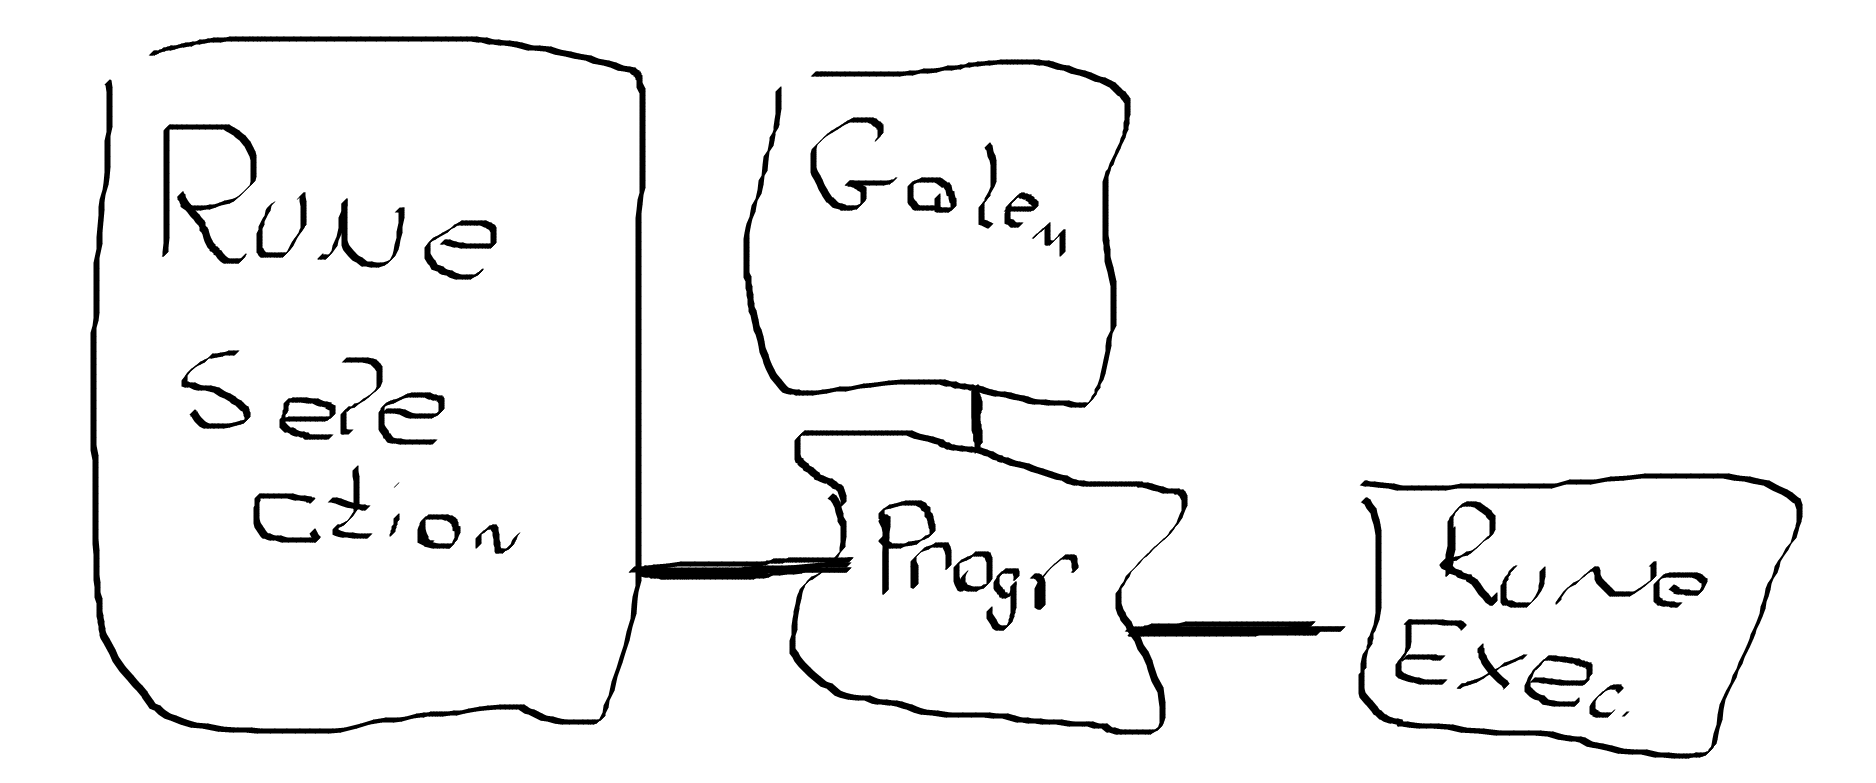 Rune
Sele
ction
Golem
Progr
Rune
Exec.